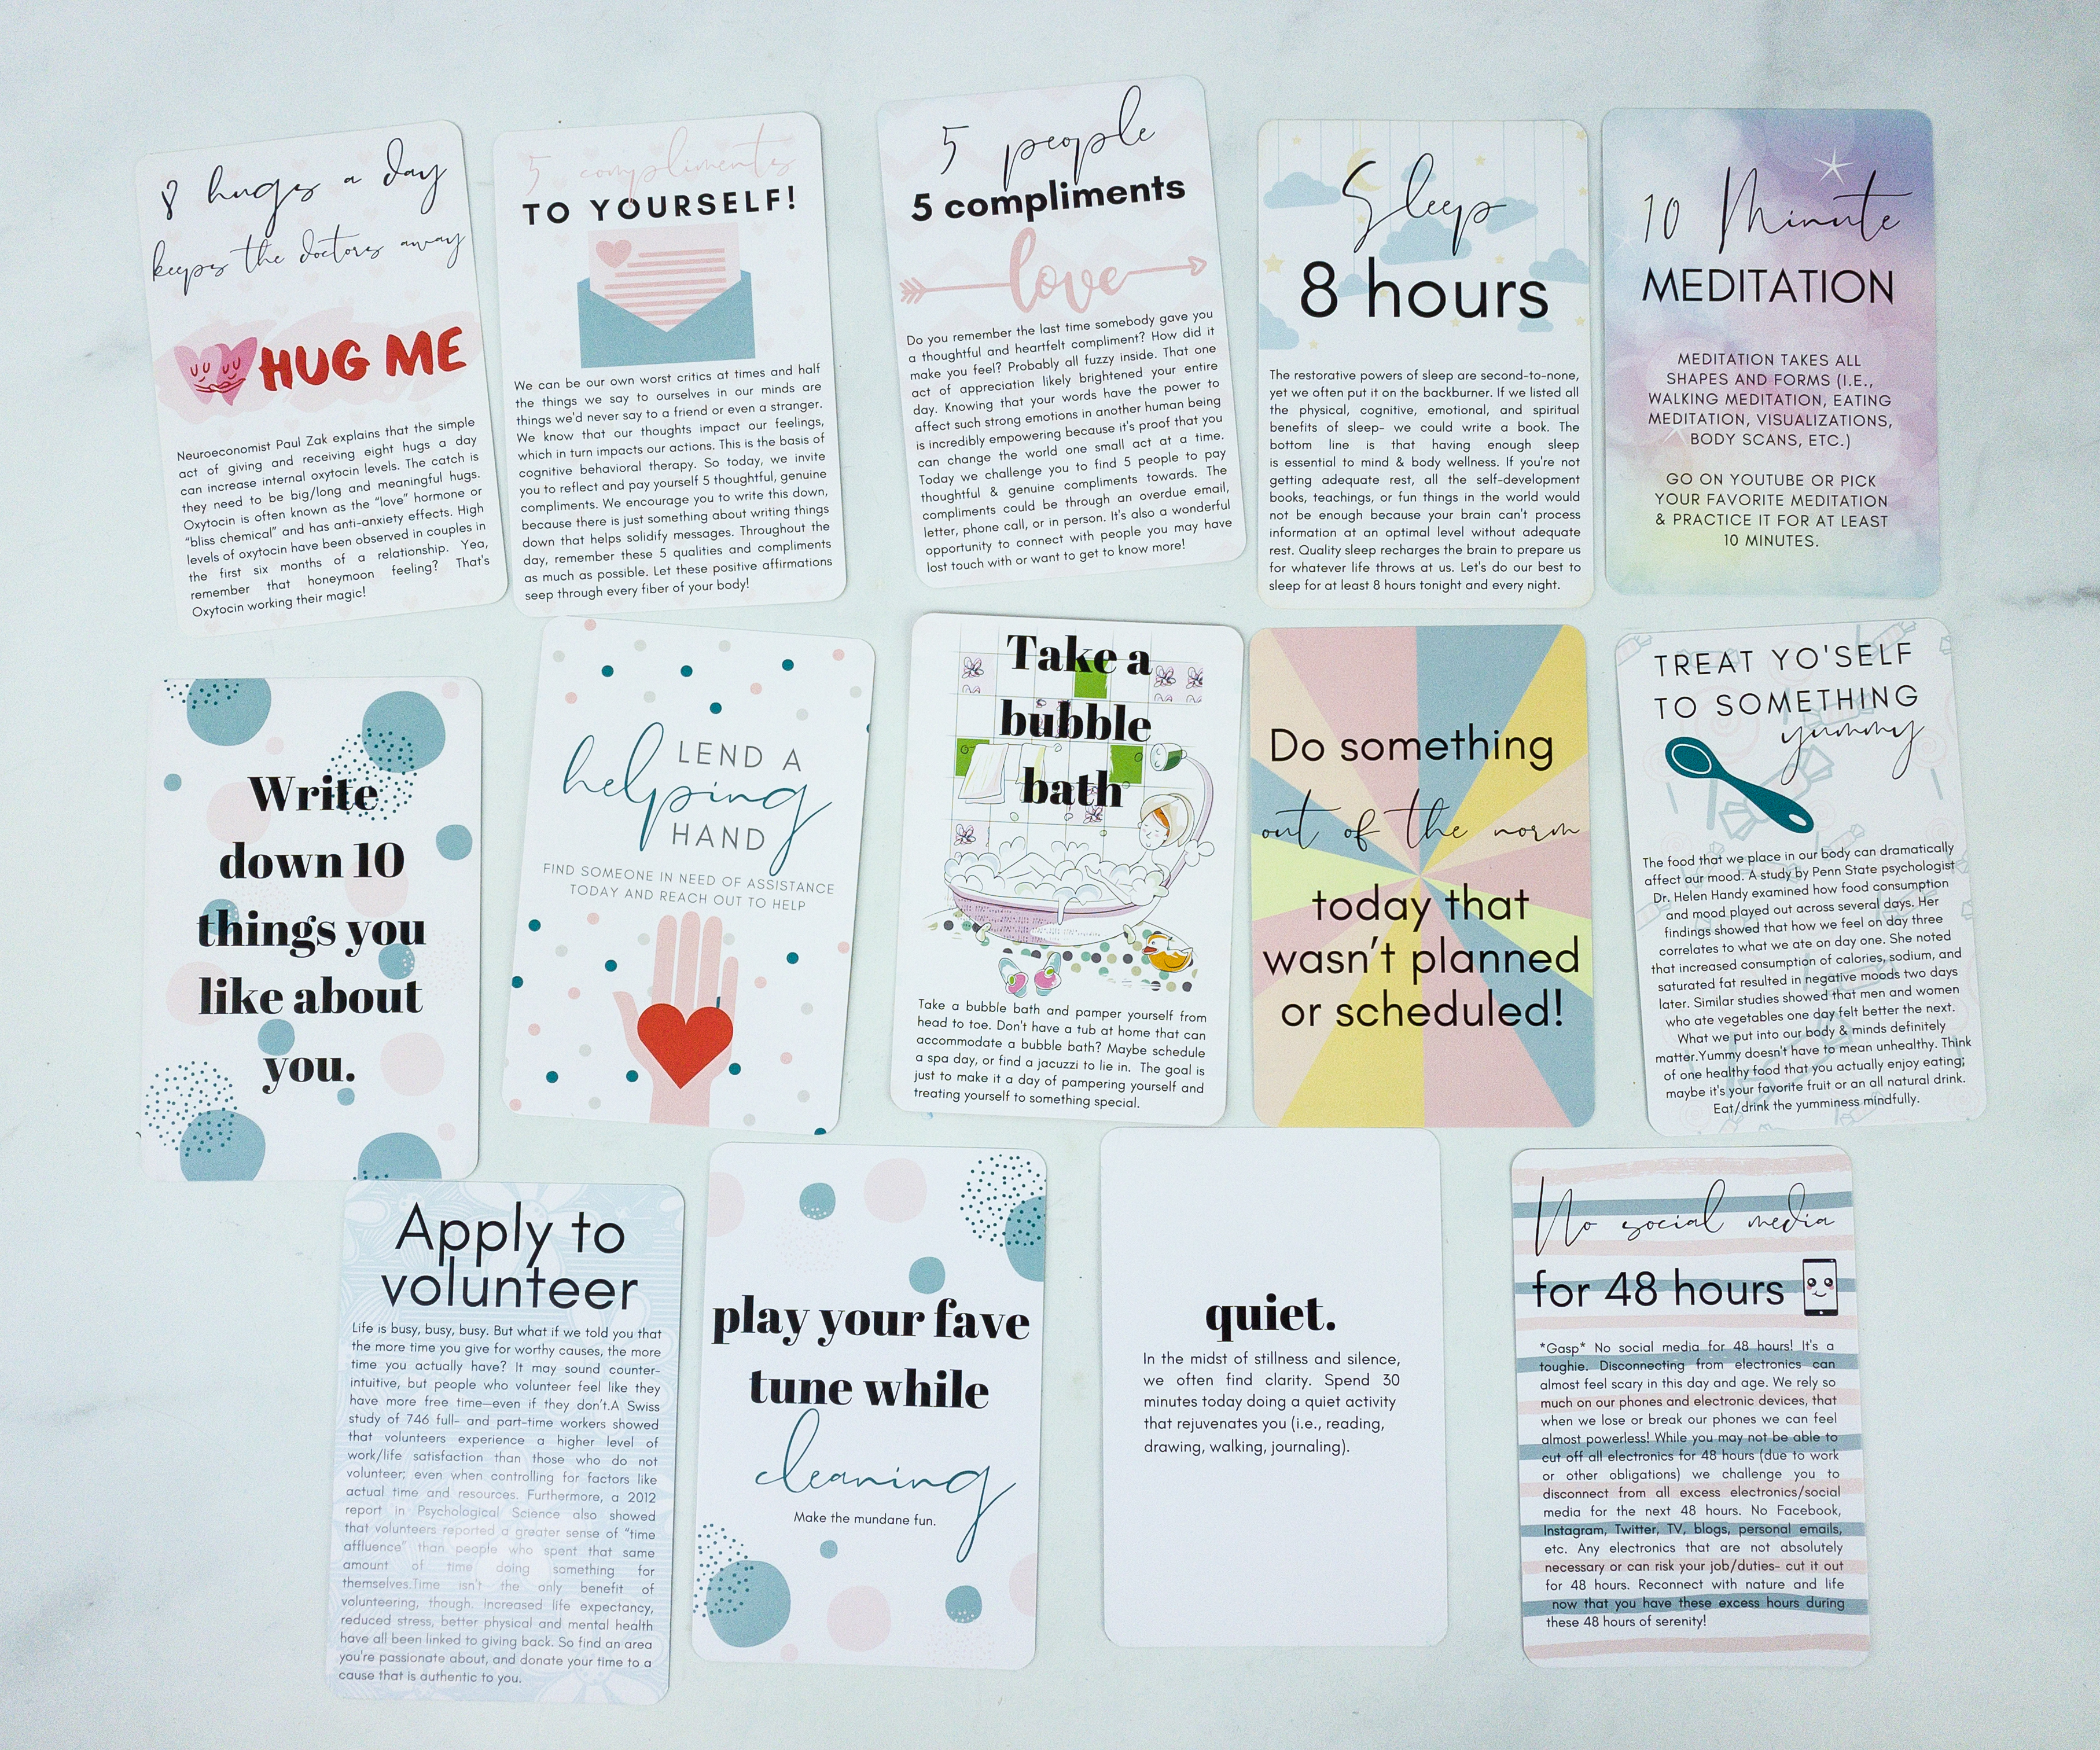 8 hugs a day
keeps the doctors away
HUG ME
Neuroeconomist Paul Zak explains that the simple
act of giving and receiving eight hugs a day
can increase internal oxytocin levels. The catch is
they need to be big/long and meaningful hugs.
Oxytocin is often known as the “love” hormone or
“bliss chemical” and has anti-anxiety effects. High
levels of oxytocin have been observed in couples in
the first six months of a relationship. Yea,
remember that honeymoon feeling? That's
Oxytocin working their magic!
5 compliments
TO YOURSELF!
We can be our own worst critics at times and half
the things we say to ourselves in our minds are
things we'd never say to a friend or even a stranger.
We know that our thoughts impact our feelings,
which in turn impacts our actions. This is the basis of
cognitive behavioral therapy. So today, we invite
you to reflect and pay yourself 5 thoughtful, genuine
compliments. We encourage you to write this down,
because there is just something about writing things
down that helps solidify messages. Throughout the
day, remember these 5 qualities and compliments
as much as possible. Let these positive affirmations
seep through every fiber of your body!
5 people
5 compliments
love
Do you remember the last time somebody gave you
a thoughtful and heartfelt compliment? How did it
make you feel? Probably all fuzzy inside. That one
act of appreciation likely brightened your entire
day. Knowing that your words have the power to
affect such strong emotions in another human being
is incredibly empowering because it's proof that you
can change the world one small act at a time.
Today we challenge you to find 5 people to pay
thoughtful & genuine compliments towards. The
compliments could be through an overdue email,
letter, phone call, or in person. It's also a wonderful
opportunity to connect with people you may have
lost touch with or want to get to know more!
Sleep
8 hours
The restorative powers of sleep are second-to-none,
yet we often put it on the backburner. If we listed all
the physical, cognitive, emotional, and spiritual
benefits of sleep- we could write a book. The
bottom line is that having enough sleep
is essential to mind & body wellness. If you're not
getting adequate rest, all the self-development
books, teachings, or fun things in the world would
not be enough because your brain can't process
information at an optimal level without adequate
rest. Quality sleep recharges the brain to prepare us
for whatever life throws at us. Let's do our best to
sleep for at least 8 hours tonight and every night.
10 Minute
MEDITATION
MEDITATION TAKES ALL
SHAPES AND FORMS (I.E.,
WALKING MEDITATION, EATING
MEDITATION, VISUALIZATIONS,
BODY SCANS, ETC.)
GO ON YOUTUBE OR PICK
YOUR FAVORITE MEDITATION
& PRACTICE IT FOR AT LEAST
10 MINUTES.
Write
down 10
things you
like about
you.
LEND A
helping
HAND
FIND SOMEONE IN NEED OF ASSISTANCE
TODAY AND REACH OUT TO HELP
Take a
bubble
bath
Take a bubble bath and pamper yourself from
head to toe. Don't have a tub at home that can
accommodate a bubble bath? Maybe schedule
a spa day, or find a jacuzzi to lie in. The goal is
just to make it a day of pampering yourself and
treating yourself to something special.
Do something
out of the norm
today that
wasn't planned
or scheduled!
TREAT YO'SELF
TO SOMETHING
yummy
The food that we place in our body can dramatically
affect our mood. A study by Penn State psychologist
Dr. Helen Handy examined how food consumption
and mood played out across several days. Her
findings showed that how we feel on day three
correlates to what we ate on day one. She noted
that increased consumption of calories, sodium, and
saturated fat resulted in negative moods two days
later. Similar studies showed that men and women
who ate vegetables one day felt better the next.
What we put into our body & minds definitely
matter.Yummy doesn't have to mean unhealthy. Think
of one healthy food that you actually enjoy eating;
maybe it's your favorite fruit or an all natural drink.
Eat/drink the yumminess mindfully.
Apply to
volunteer
Life is busy, busy, busy. But what if we told you that
the more time you give for worthy causes, the more
time you actually have? It may sound counter-
intuitive, but people who volunteer feel like they
have more free time—even if they don't.A Swiss
study of 746 full- and part-time workers showed
that volunteers experience a higher level of
work/life satisfaction than those who do not
volunteer; even when controlling for factors like
actual time and resources. Furthermore, a 2012
report in Psychological Science also showed
that volunteers reported a greater sense of “time
affluence” than people who spent that same
amount of time doing something for
themselves.Time isn't the only benefit of
volunteering, though. Increased life expectancy,
reduced stress, better physical and mental health
have all been linked to giving back. So find an area
you're passionate about, and donate your time to a
cause that is authentic to you.
play your fave
tune while
cleaning
Make the mundane fun.
quiet.
In the midst of stillness and silence,
we often find clarity. Spend 30
minutes today doing a quiet activity
that rejuvenates you (i.e., reading,
drawing, walking, journaling).
No social media
for 48 hours
*Gasp* No social media for 48 hours! It's a
toughie. Disconnecting from electronics can
almost feel scary in this day and age. We rely so
much on our phones and electronic devices, that
when we lose or break our phones we can feel
almost powerless! While you may not be able to
cut off all electronics for 48 hours (due to work
or other obligations) we challenge you to
disconnect from all excess electronics/social
media for the next 48 hours. No Facebook,
Instagram, Twitter, TV, blogs, personal emails,
etc. Any electronics that are not absolutely
necessary or can risk your job/duties- cut it out
for 48 hours. Reconnect with nature and life
now that you have these excess hours during
these 48 hours of serenity!